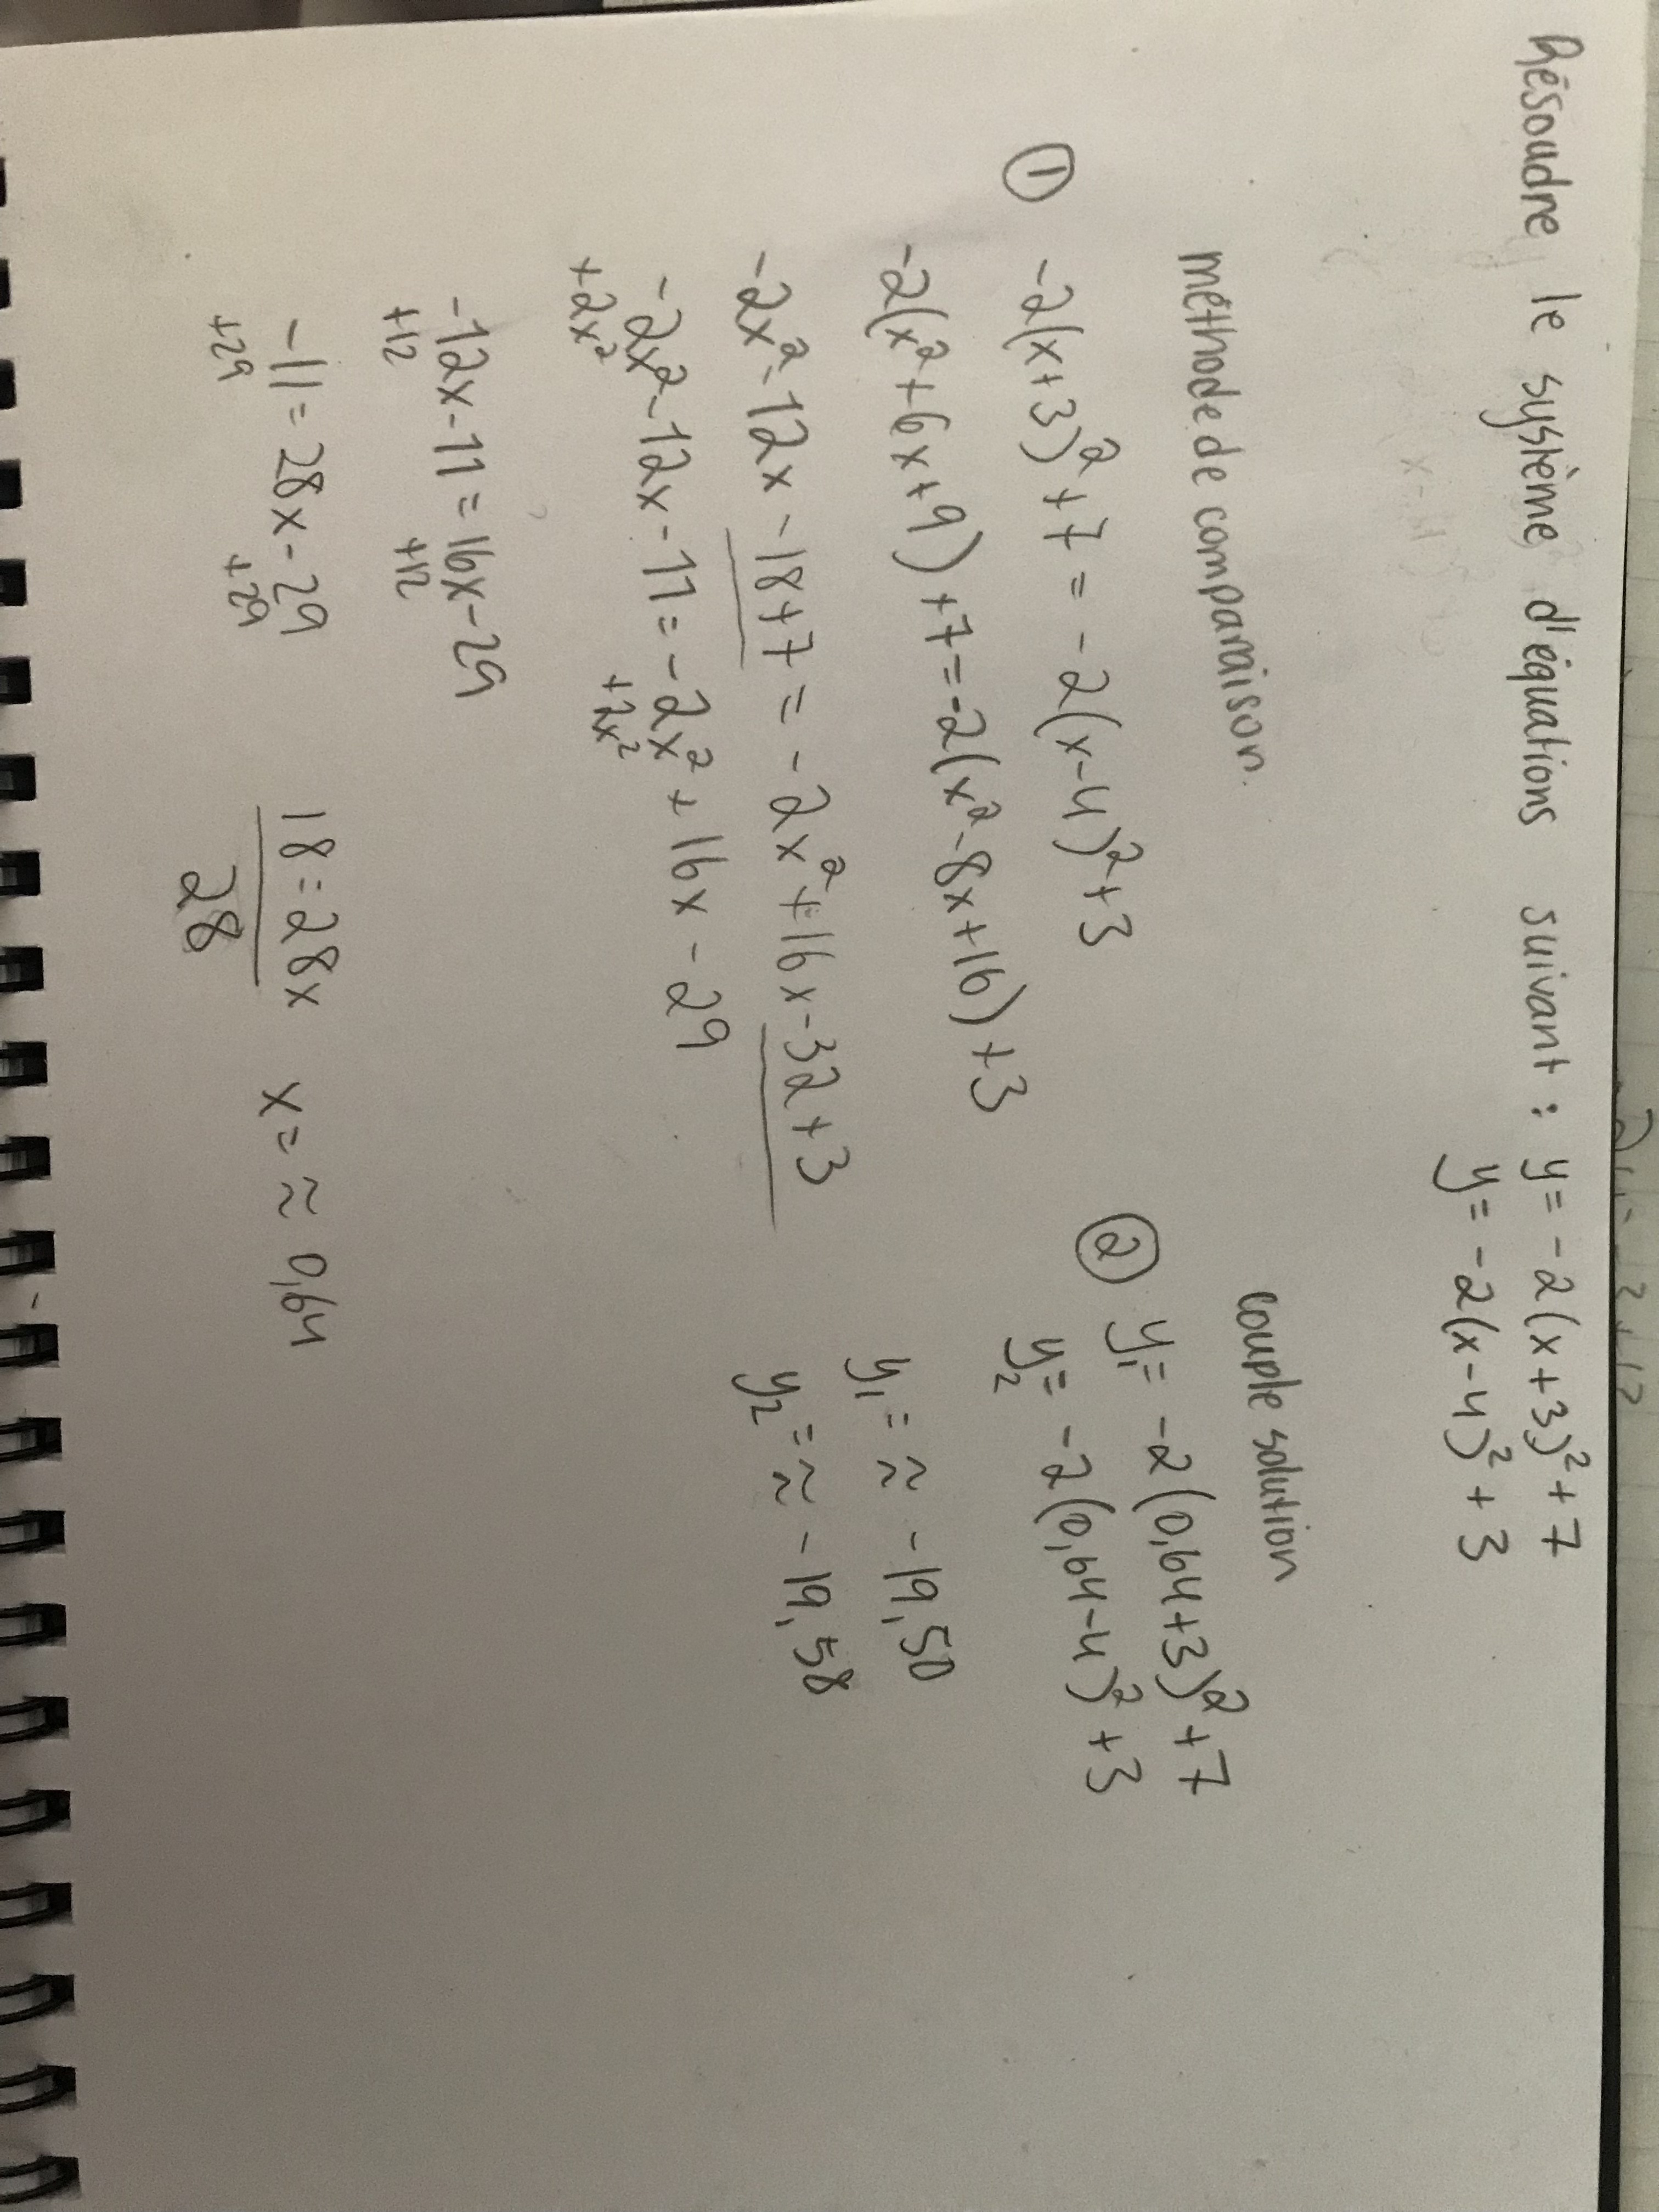 Résoudre le système d'équations suivant : y = -2(x+3)² + 7
y = -2(x-4)² + 3
méthode de comparaison.
① -2(x+3)² + 7 = -2(x-4)² + 3
-2(x² + 6x + 9) + 7 = -2(x² - 8x + 16) + 3
-2x² - 12x - 18 + 7 = -2x² + 16x - 32 + 3
-2x² - 12x - 11 = -2x² + 16x - 29
+2x² +2x²
-12x - 11 = 16x - 29
+12 +12
-11 = 28x - 29
+29 +29
18 = 28x
28
x = ≈ 0,64
couple solution
② y₁ = -2(0,64+3)² + 7
y₂ = -2(0,64-4)² + 3
y₁ = ≈ -19,50
y₂ = ≈ -19,58